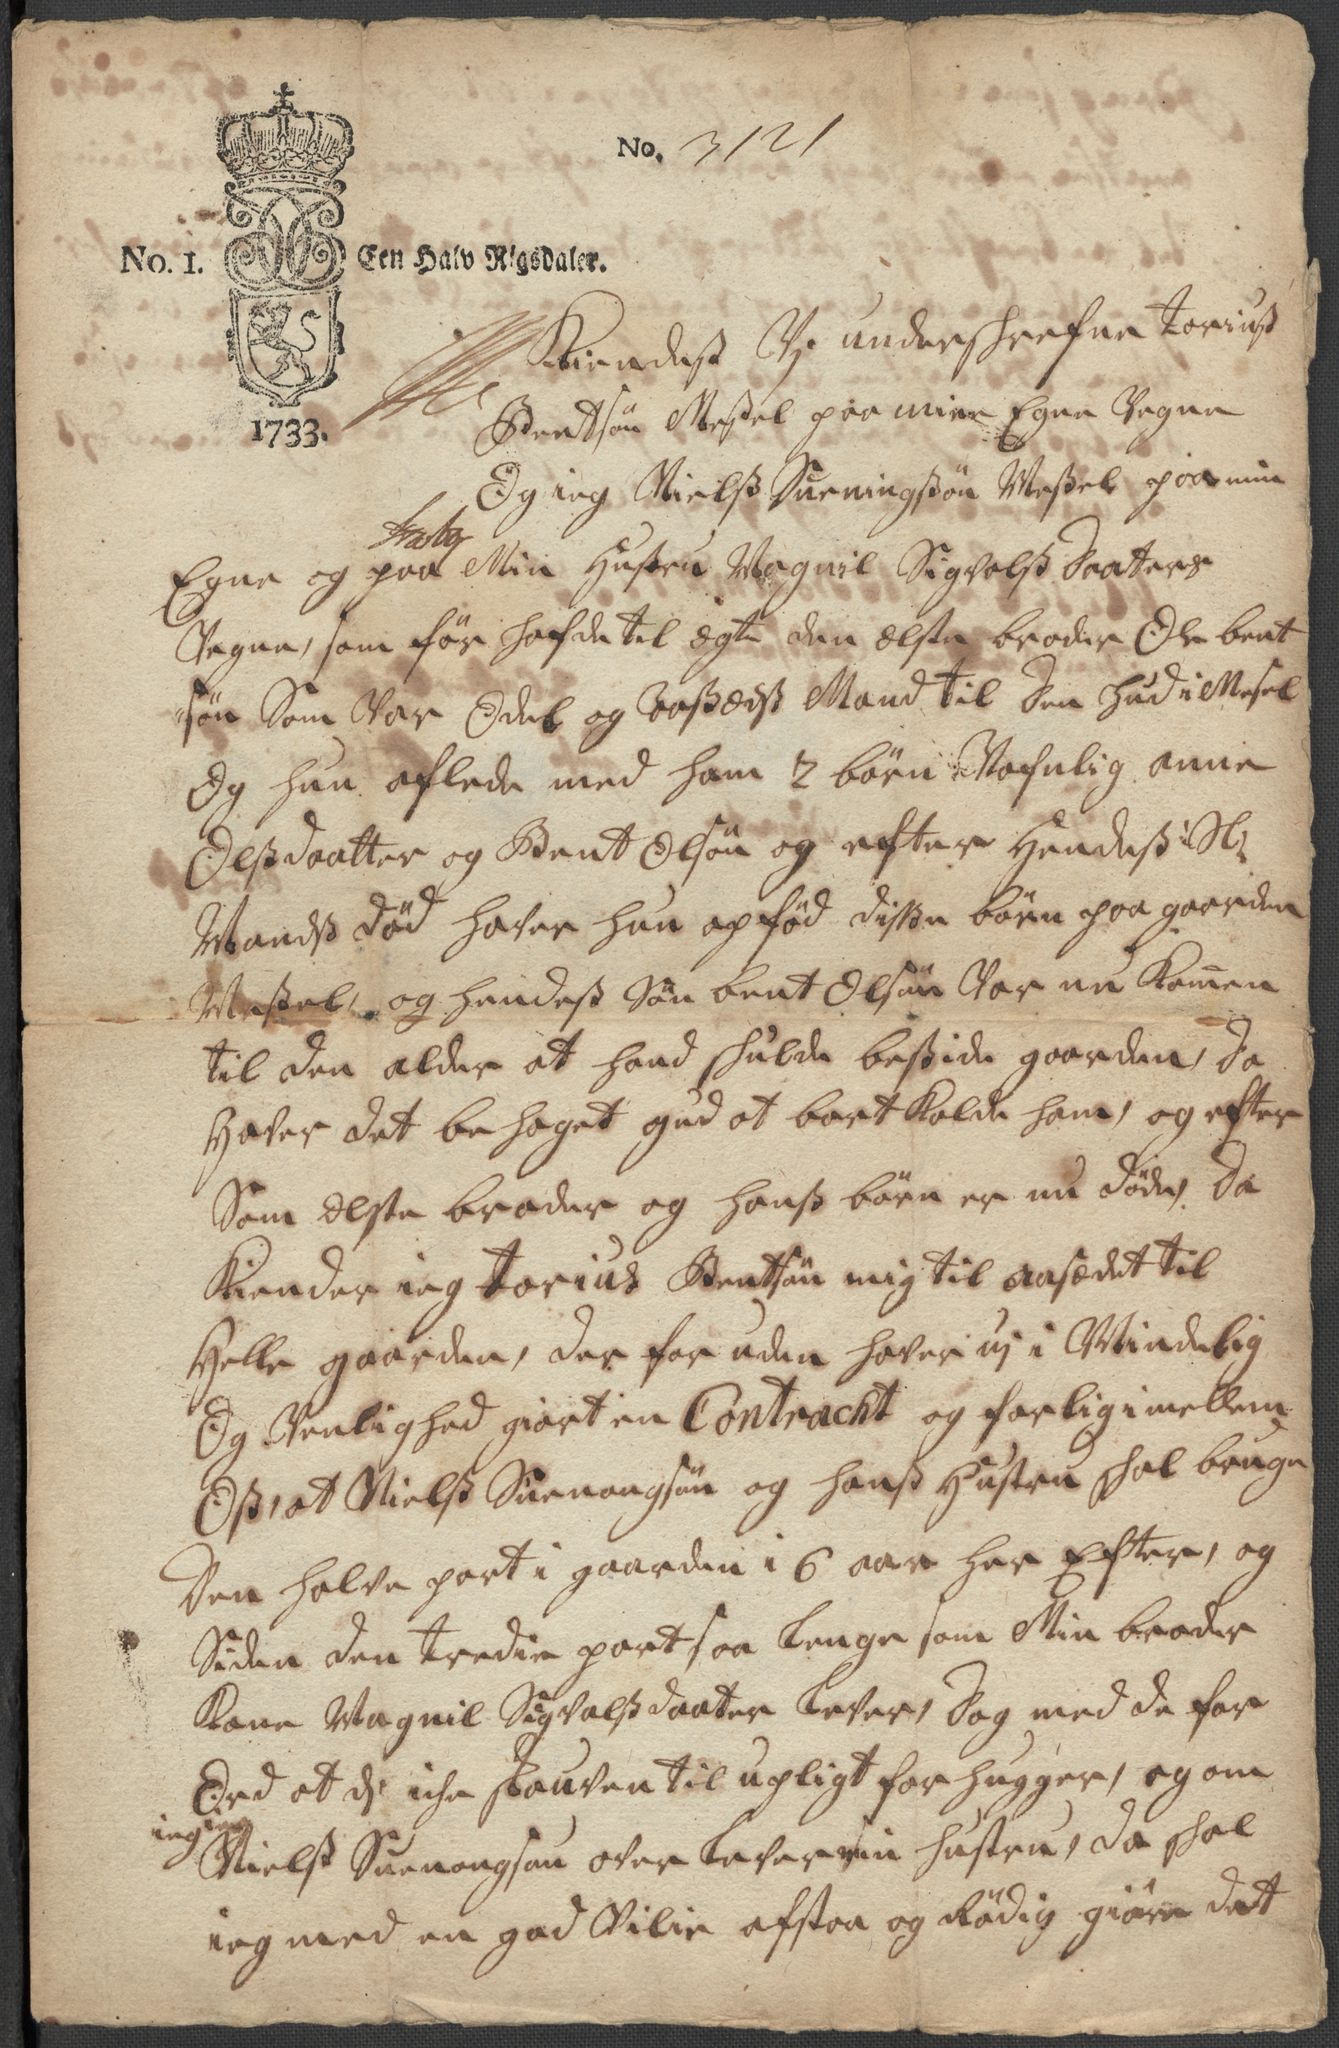 No. 3121
No. 1. Een Halv Rigsdaler.
1733.
Kiendeß Vj underskrefne Toriuß
Bentsön Meßel paa mine Egne Vegne
Og ieg Nielß Sueningßön Meßel paa min
Egne og paa Min Hustru Magnil Sigvalß Daaters
Vegne, som för hafde til egte den elste broder Ole bent
sön Som Var Odel og aaßedß Mand til Den hud i Mesel
Og hun aflede med ham 2 börn Nafnlig anne
Olßdaatter og Bent Olsön og efter Hendeß Sl:
Mandß död haver hun opföd disse börn paa gaarden
Meßel, og hendeß Sön bent Olsön Var nu Komen
til den alder at hand skulde beside gaarden, Da
Haver det behaget gud at bort Kalde ham, og efter
Som elste broder og hanß börn er nu döde, Da
Kiender ieg Torius Bentsön mig til aasædet til
Helle gaarden, der for uden haver vj i Mindelig
Og Venlighed giort en Contracht og forlig imellem
Oß, at Nielß Suenongsön og hanß Hustru skal bruge
Den halve part i gaarden i 6 aar her Efter, og
Siden den tredie part saa Lenge som Min broder
Kone Magnil Sigvalßdaater Lever, Dog med de for
Ord at de iche skauven til upligt forhugger, og om
ieg
Nielß Suenongsön over Lever min hustru, da skal
ieg med en god Vilie afstaa og Rödig giöre det